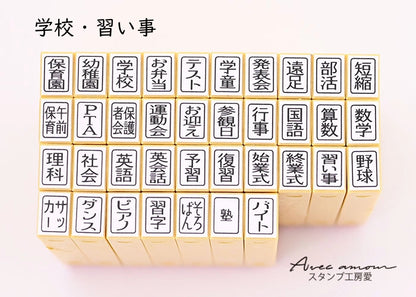 学校・習い事
保育園 幼稚園 学校 お弁当 テスト 学童 発表会 遠足 部活 短縮
午前保育 PTA 保護者会 運動会 お迎え 参観日 行事 国語 算数 数学
理科 社会 英語 英会話 予習 復習 始業式 終業式 習い事 野球
サッカー ダンス ピアノ 習字 そろばん 塾 バイト
Avec amour
スタンプ工房愛